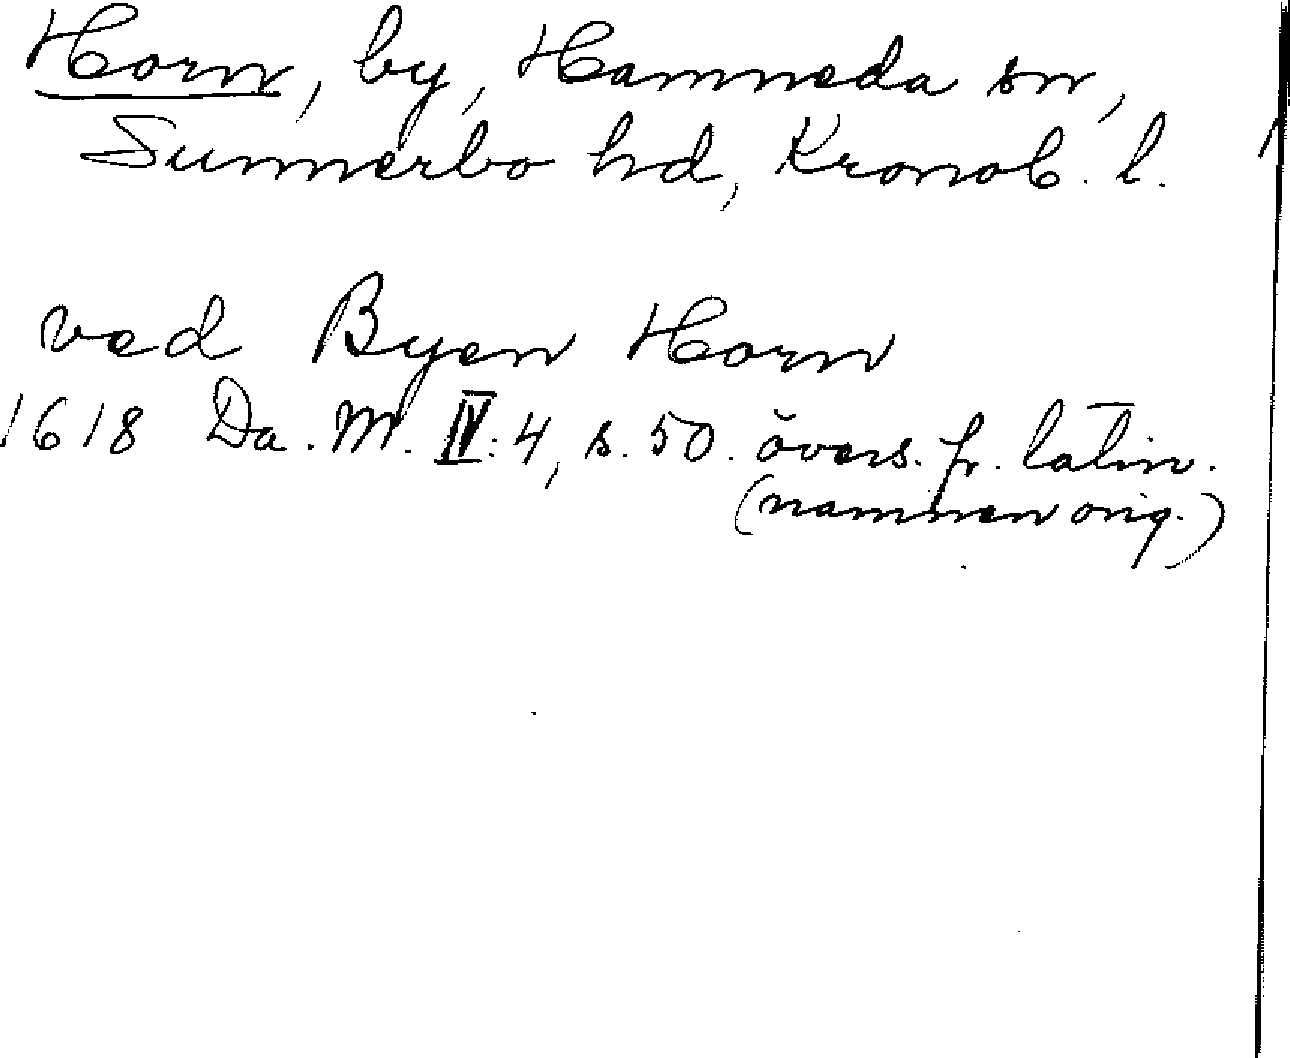 Horn, by, Hamneda sn,
Sunnerbo hd, Kronob. l.
ved Byen Horn
1618 Da. M. IV: 4, s. 50. övers. fr. latin.
(namnen orig.)